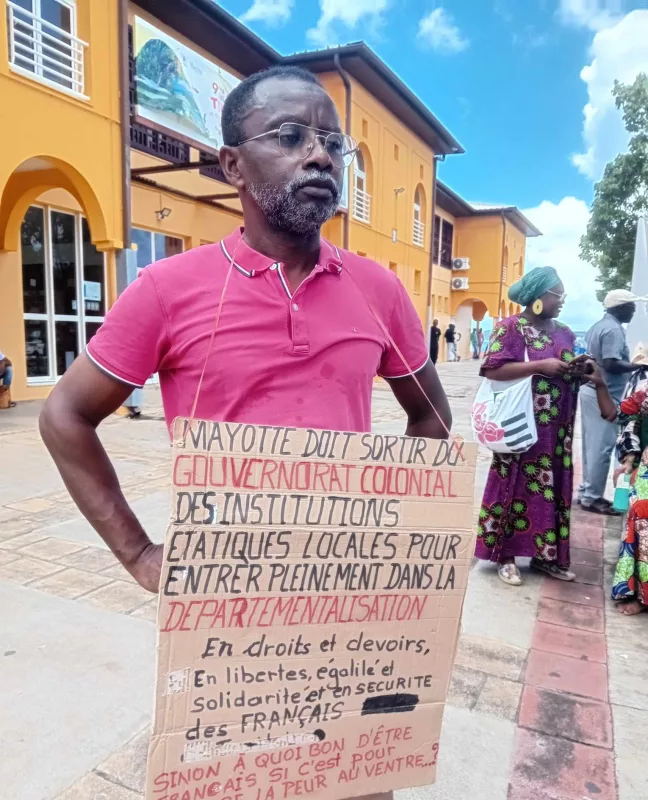 MAYOTTE DOIT SORTIR DU
GOUVERNORAT COLONIAL
DES INSTITUTIONS
ETATIQUES LOCALES POUR
ENTRER PLEINEMENT DANS LA
DEPARTEMENTALISATION
En droits et devoirs,
En libertes, égalité et
solidarité et en SECURITE
des FRANÇAIS
SINON A QUOI BON D'ÊTRE
FRANCAIS SI C'est POUR
LA PEUR AU VENTRE...?